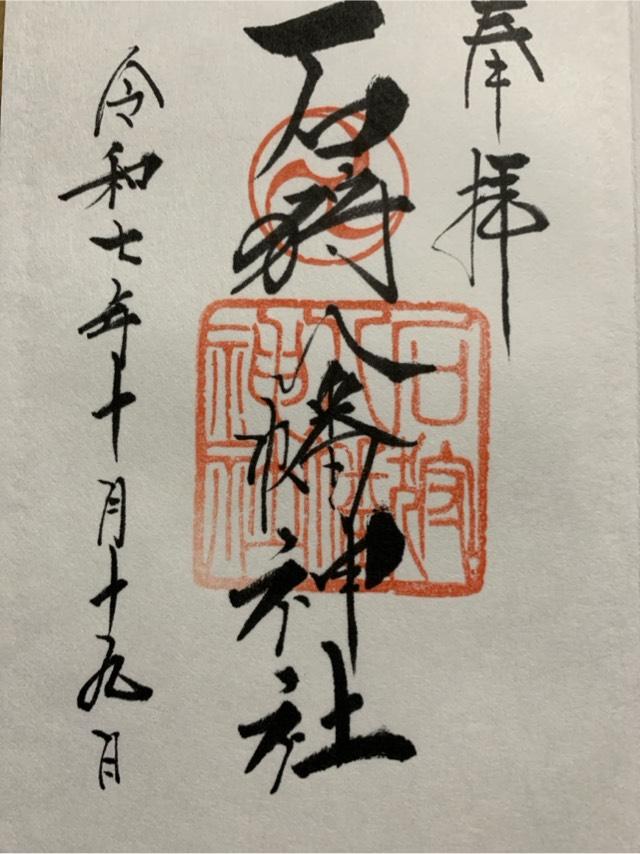 奉拝
石狩八幡神社
石狩
八幡
神社
令和七年十月十九日